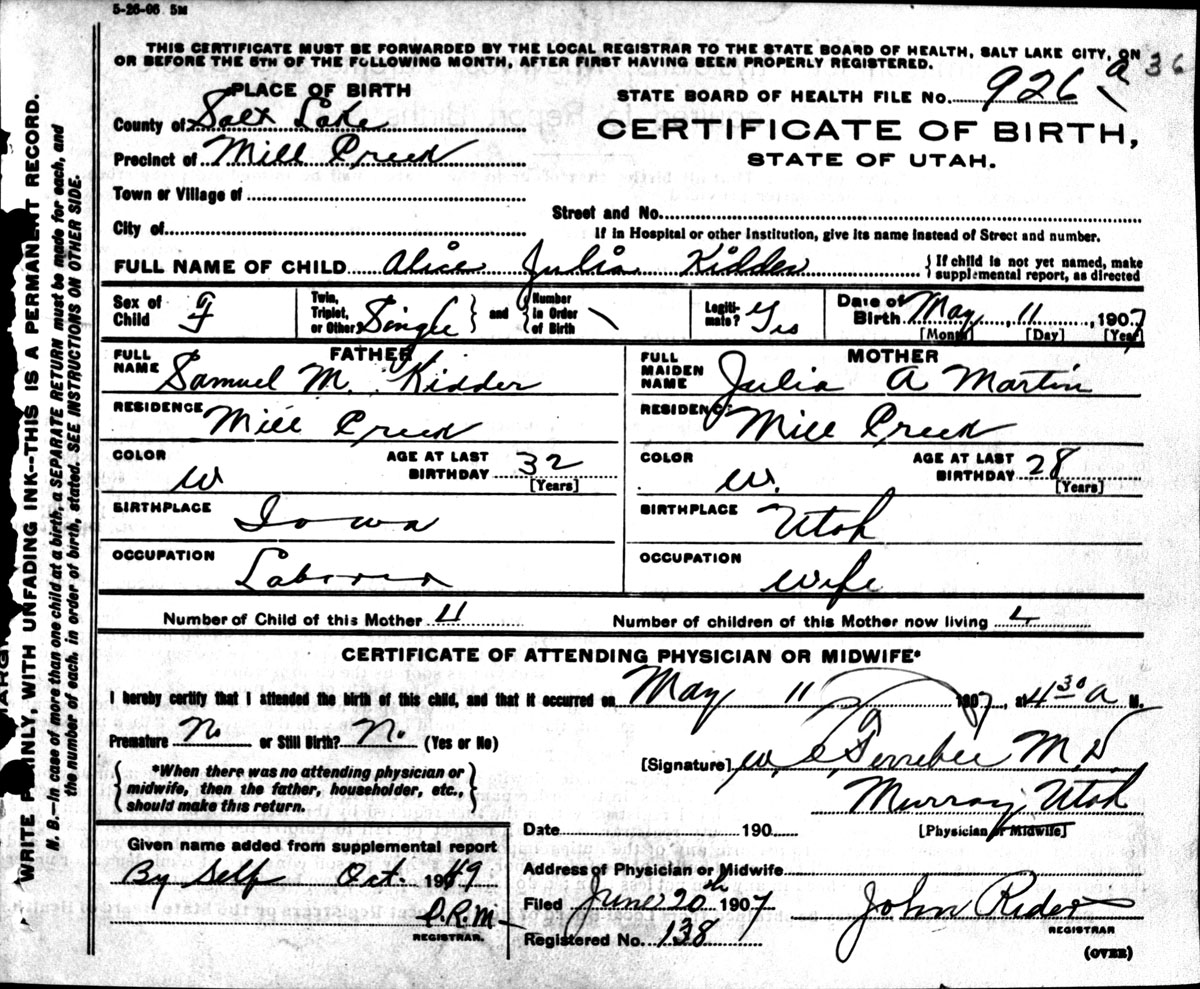 5-26-06 5M
THIS CERTIFICATE MUST BE FORWARDED BY THE LOCAL REGISTRAR TO THE STATE BOARD OF HEALTH, SALT LAKE CITY, ON
OR BEFORE THE 5TH OF THE FOLLOWING MONTH, AFTER FIRST HAVING BEEN PROPERLY REGISTERED.
36
PLACE OF BIRTH
STATE BOARD OF HEALTH FILE No. 926 a
County of Salt Lake
CERTIFICATE OF BIRTH,
Precinct of Mill Creek
STATE OF UTAH.
Town or Village of
Street and No.
City of
If in Hospital or other Institution, give its name instead of Street and number.
FULL NAME OF CHILD Alice Julia Kidder
{If child is not yet named, make
supplemental report, as directed
Sex of Child F
Twin, Triplet, or Other? Single } and { Number in Order of Birth
Legitimate? Yes
Date of Birth May, 11, 1907
[Month] [Day] [Year]
FATHER
MOTHER
FULL NAME Samuel M. Kidder
FULL MAIDEN NAME Julia A Martin
RESIDENCE Mill Creek
RESIDENCE Mill Creek
COLOR W
AGE AT LAST BIRTHDAY 32 [Years]
COLOR W.
AGE AT LAST BIRTHDAY 28 [Years]
BIRTHPLACE Iowa
BIRTHPLACE Utah
OCCUPATION Laborer
OCCUPATION Wife
Number of Child of this Mother 4
Number of children of this Mother now living 4
CERTIFICATE OF ATTENDING PHYSICIAN OR MIDWIFE*
I hereby certify that I attended the birth of this child, and that it occurred on May 11 1907, at 4 30 a M.
Premature No or Still Birth? No (Yes or No)
{ *When there was no attending physician or
midwife, then the father, householder, etc.,
should make this return. }
[Signature] W. M D
Murray Utah
[Physician or Midwife]
Date 190
Given name added from supplemental report
By Self Oct. 1949
Address of Physician or Midwife
P.R.M
REGISTRAR.
Filed June 20th 1907
John Rider
REGISTRAR
Registered No. 138
(OVER)
WRITE PLAINLY, WITH UNFADING INK--THIS IS A PERMANENT RECORD.
N. B.—In case of more than one child at a birth, a SEPARATE RETURN must be made for each, and
the number of each, in order of birth, stated. SEE INSTRUCTIONS ON OTHER SIDE.